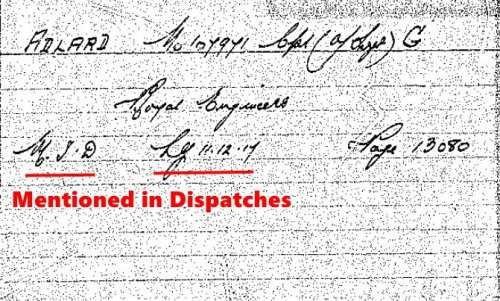 ADLARD No 107971 Cpl (A/Sergt) G
Royal Engineers
M.I.D LG 11.12.17 Page 13080
Mentioned in Dispatches